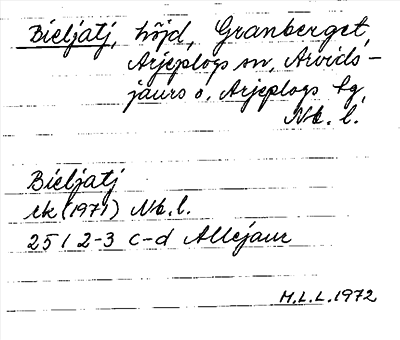 Bieljatj, höjd, Granberget,
Arjeplogs sn, Arvids-
jaurs o. Arjeplogs tg,
Nb. l.
Bieljatj
rk (1971) Nb. l.
25 I 2-3 c-d Allejaur
M.L.L. 1972